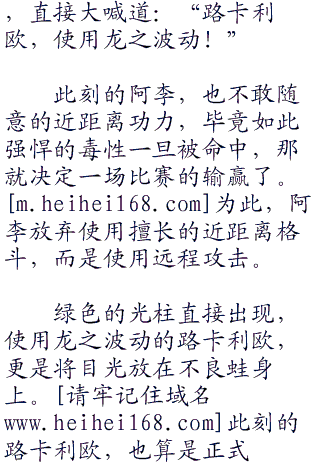 ，直接大喊道：“路卡利
欧，使用龙之波动！”
此刻的阿李，也不敢随
意的近距离功力，毕竟如此
强悍的毒性一旦被命中，那
就决定一场比赛的输赢了。
[m.heihei168.com]为此，阿
李放弃使用擅长的近距离格
斗，而是使用远程攻击。
绿色的光柱直接出现，
使用龙之波动的路卡利欧，
更是将目光放在不良蛙身
上。[请牢记住域名
www.heihei168.com]此刻的
路卡利欧，也算是正式